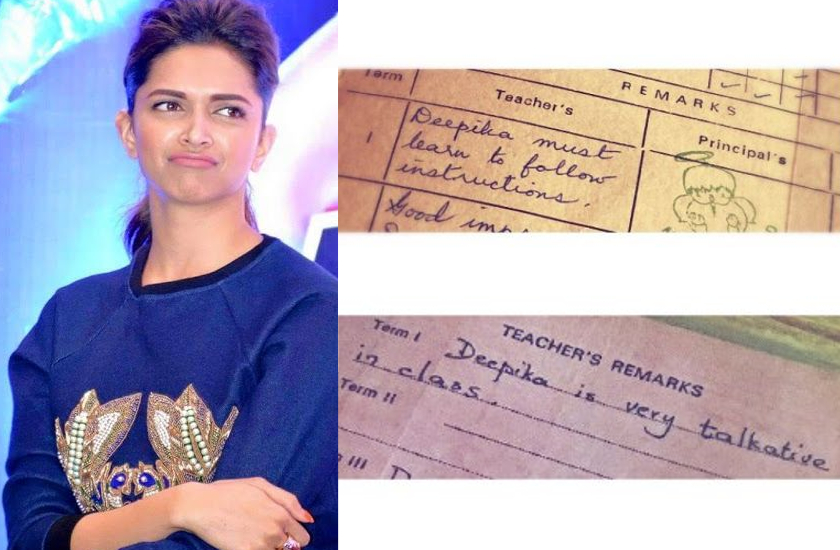 Term
REMARKS
Teacher's
Principal's
I
Deepika must
learn to follow
instructions.
Good
Term I
TEACHER'S REMARKS
Deepika is very talkative
in class.
Term II
III